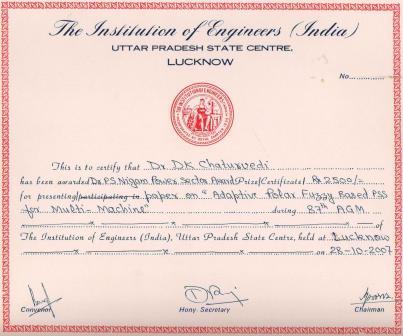 The Institution of Engineers (India)
UTTAR PRADESH STATE CENTRE,
LUCKNOW
No.
This is to certify that Dr. DK Chaturvedi
has been awarded Dr. P.S. Nigam Power Sector Award Prize/Certificate/ Rs 2500/-
for presenting/participating in paper on "Adaptive Polar Fuzzy Based PSS
for Multi-Machine" during 87th AGM
of
The Institution of Engineers (India), Uttar Pradesh State Centre, held at Lucknow
on 28-10-2007
Convenor Hony. Secretary Chairman